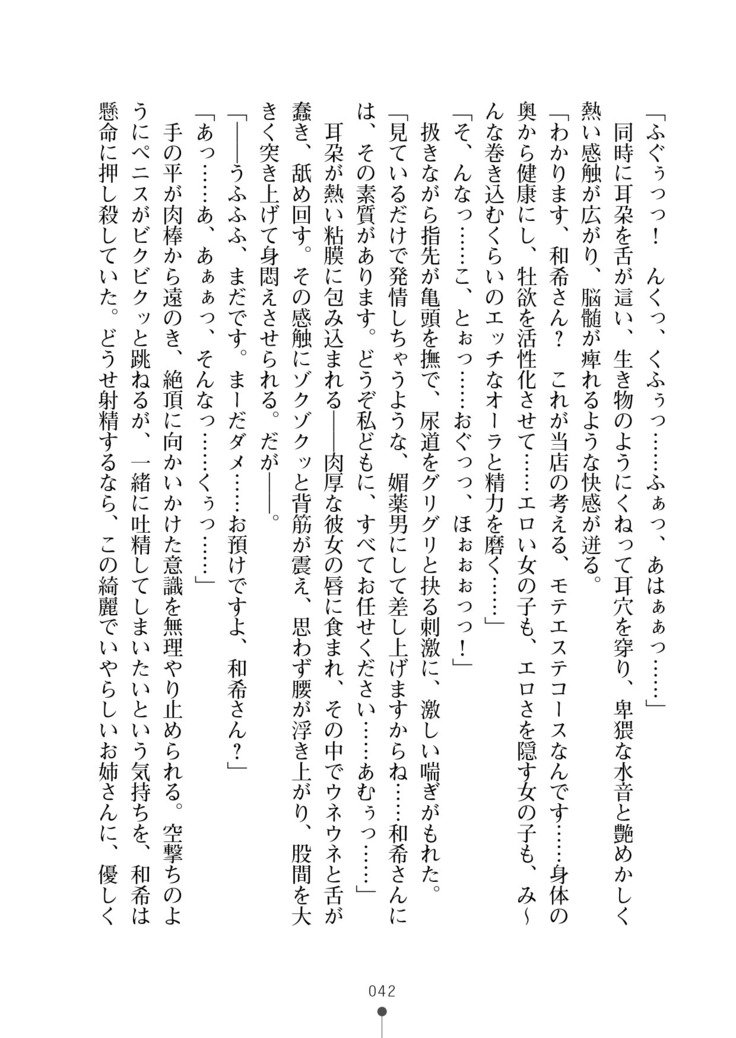 「ふぐぅっっ！　んくっ、くふぅっ……ふぁっ、あはぁぁっ……」
同時に耳朶を舌が這い、生き物のようにくねって耳穴を穿り、卑猥な水音と艶めかしく
熱い感触が広がり、脳髄が痺れるような快感が迸る。
「わかります、和希さん？　これが当店の考える、モテエステコースなんです……身体の
奥から健康にし、牡欲を活性化させて……エロい女の子も、エロさを隠す女の子も、み～
んな巻き込むくらいのエッチなオーラと精力を磨く……」
「そ、んなっ……こ、とぉっ……おぐっっ、ほぉぉぉっっ！」
扱きながら指先が亀頭を撫で、尿道をグリグリと抉る刺激に、激しい喘ぎがもれた。
「見ているだけで発情しちゃうような、媚薬男にして差し上げますからね……和希さんに
は、その素質があります。どうぞ私どもに、すべてお任せください……あむぅっ……」
耳朶が熱い粘膜に包み込まれる――肉厚な彼女の唇に食まれ、その中でウネウネと舌が
蠢き、舐め回す。その感触にゾクゾクッと背筋が震え、思わず腰が浮き上がり、股間を大
きく突き上げて身悶えさせられる。だが――。
「――うふふふ、まだです。まーだダメ……お預けですよ、和希さん？」
「あっ……あ、あぁぁっ、そんなっ……くぅっ……」
手の平が肉棒から遠のき、絶頂に向かいかけた意識を無理やり止められる。空撃ちのよ
うにペニスがビクビクッと跳ねるが、一緒に吐精してしまいたいという気持ちを、和希は
懸命に押し殺していた。どうせ射精するなら、この綺麗でいやらしいお姉さんに、優しく
042